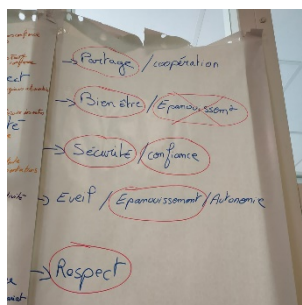 → Partage / coopération
→ Bien être / Epanouissemt
→ Sécurité / confiance
→ Eveil / Epanouissement / Autonomie
→ Respect